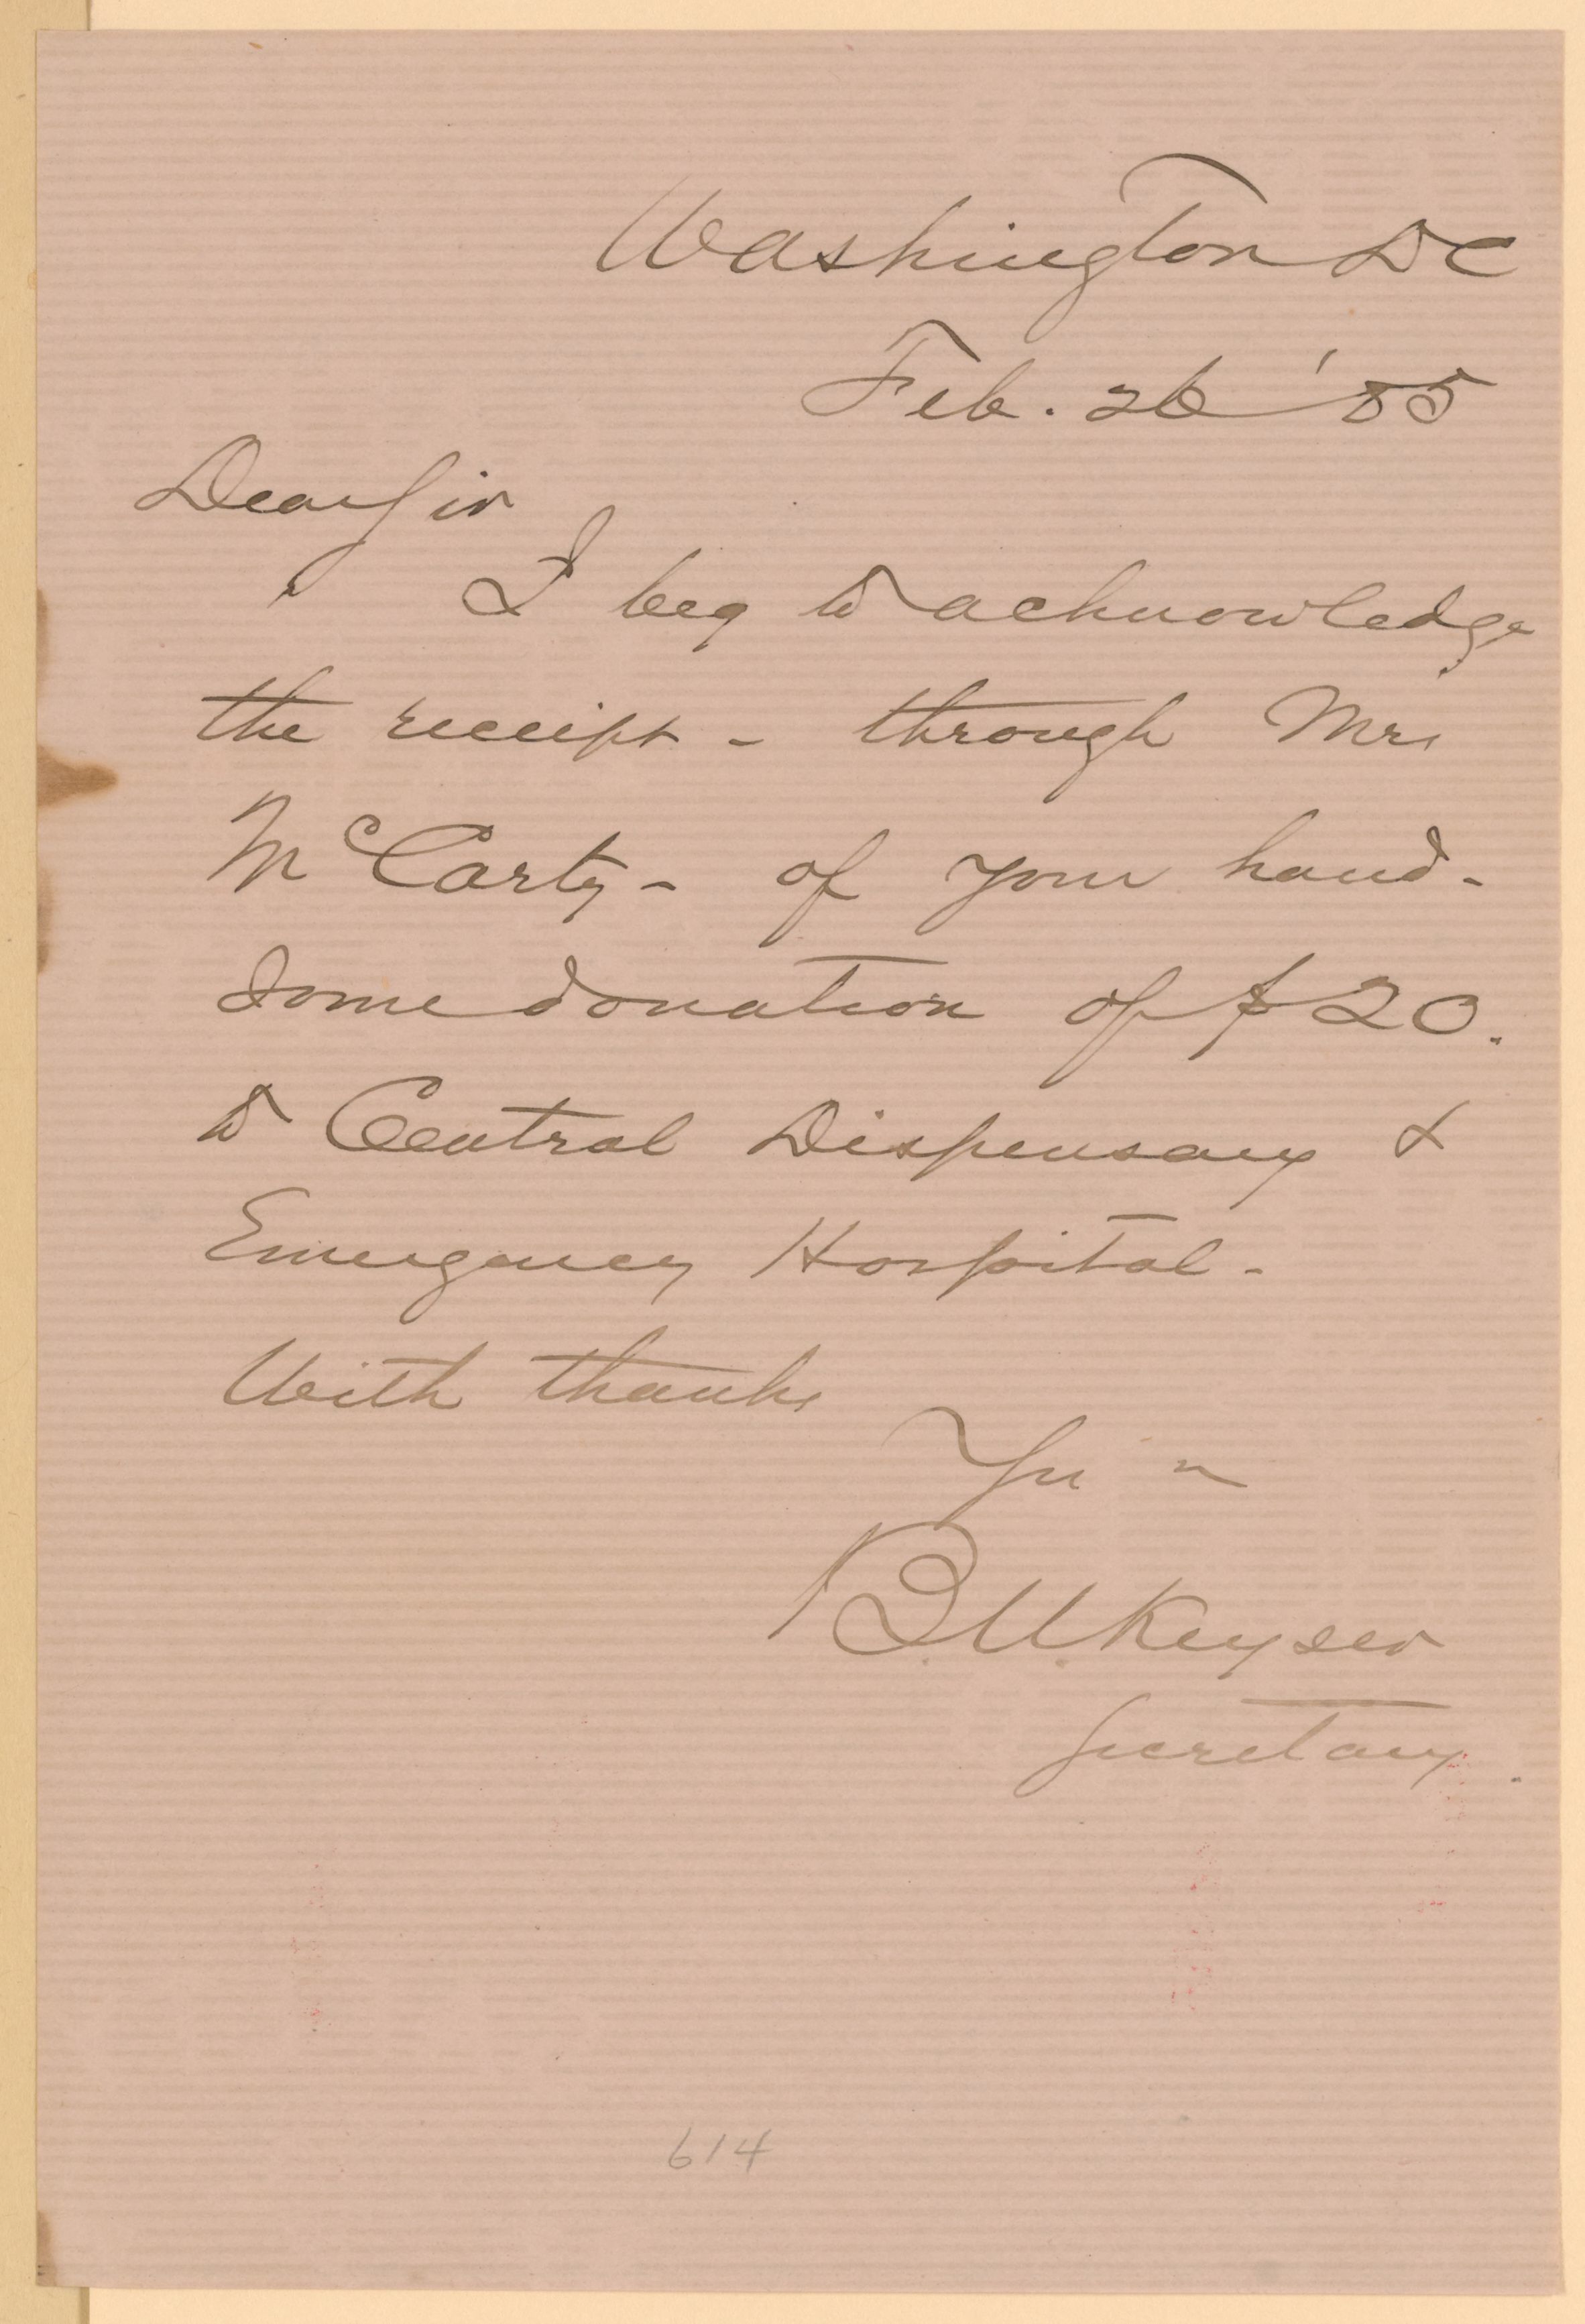 Washington DC
Feb. 26 '85
Dear Sir
I beg to acknowledge
the receipt - through Mrs
McCarty - of your hand-
some donation of $20.
to Central Dispensary &
Emergency Hospital -
With thanks
B. U. Keyser
Secretary.
614